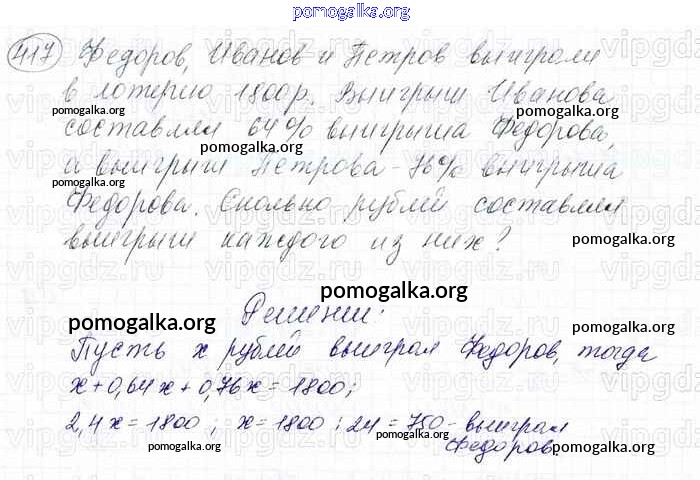 pomogalka.org
417 Федоров, Иванов и Петров выиграли
в лотерею 1800р. Выигрыш Иванова
pomogalka.org pomogalka.org
составлял 64% выигрыша Федорова,
pomogalka.org
а выигрыш Петрова - 76% выигрыша
pomogalka.org
Федорова. Сколько рублей составляли
выигрыши каждого из них?
pomogalka.org
pomogalka.org
Решение:
pomogalka.org pomogalka.org
Пусть x рублей выиграл Федоров, тогда
x + 0,64x + 0,76x = 1800;
pomogalka.org
2,4x = 1800; x = 1800 : 24 = 750 - выиграл
Федоров
pomogalka.org pomogalka.org pomogalka.org